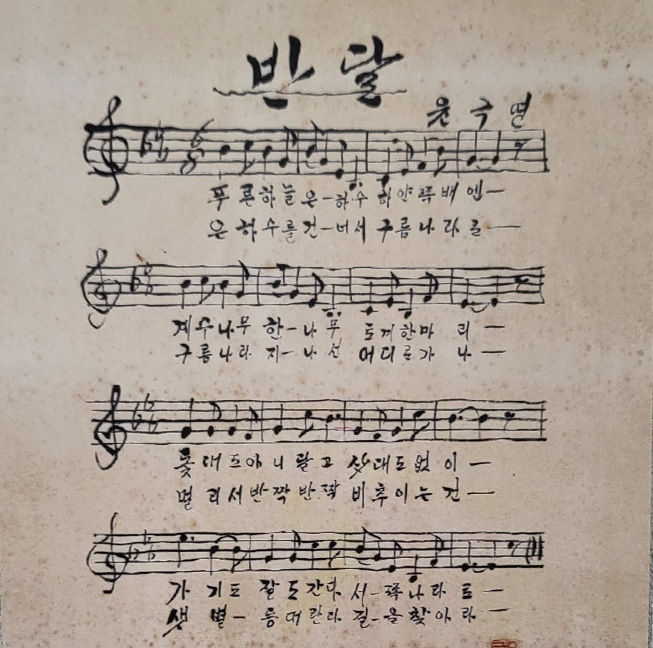 반달
윤극영
푸른하늘 은-하수 하얀쪽배엔-
은하수를 건-너서 구름나라로-
계수나무 한-나무 토끼한마 리-
구름나라 지-나선 어디로가 나-
돛대도아니달고 삿대도없 이-
멀리서반짝반짝 비추이는 건-
가 기도 잘도간다 서-쪽나라 로-
샛 별- 등대란다 길-을찾아 라-